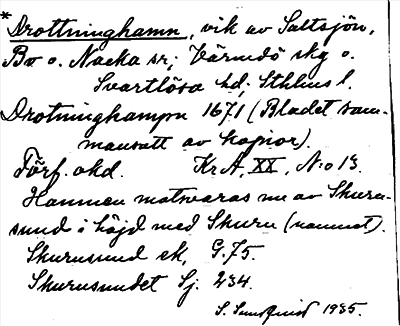 * Drottninghamn, vik av Saltsjön,
Bo o. Nacka sn; Värmdö skg o.
Svartlösa hd; Sthlms l.
Drotninghampn 1671 (Bladet sam-
mansatt av kopior).
Förf. okd. KrA, XX, N:o 13.
Hamnen motsvaras nu av Skuru-
sund i höjd med Skuru (namnet).
Skurusund ek. G.75.
Skurusundet Sj. 234.
S. Sundquist 1935.